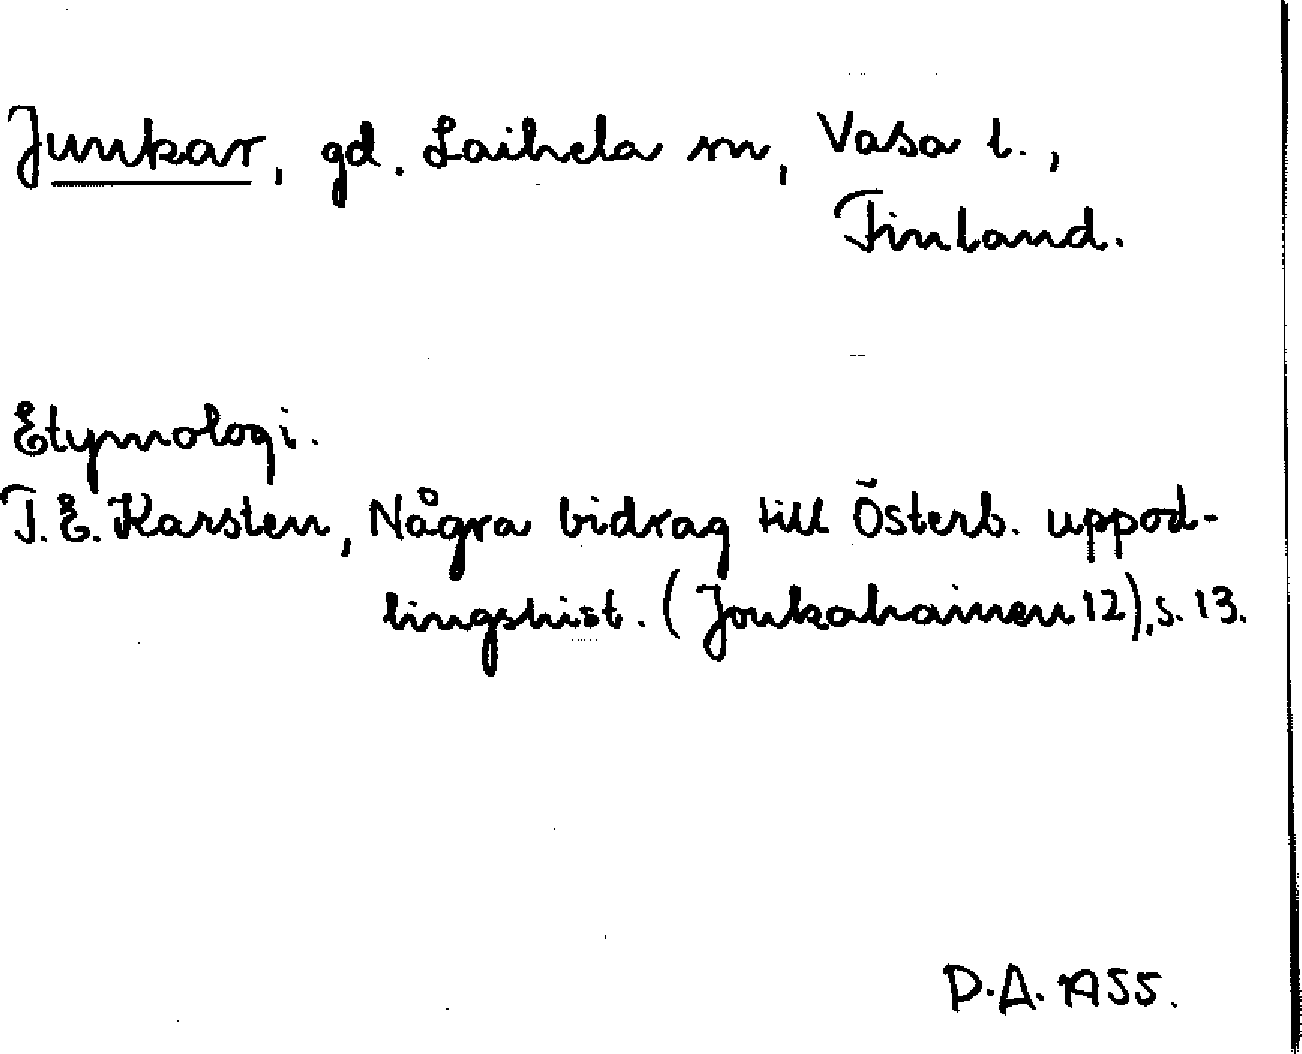 Junkar, gd. Laihela sn, Vasa l.,
Finland.
Etymologi.
T. E. Karsten, Några bidrag till Österb. uppod-
lingshist. (Joukahainen 12), s. 13.
D.A. 1955.